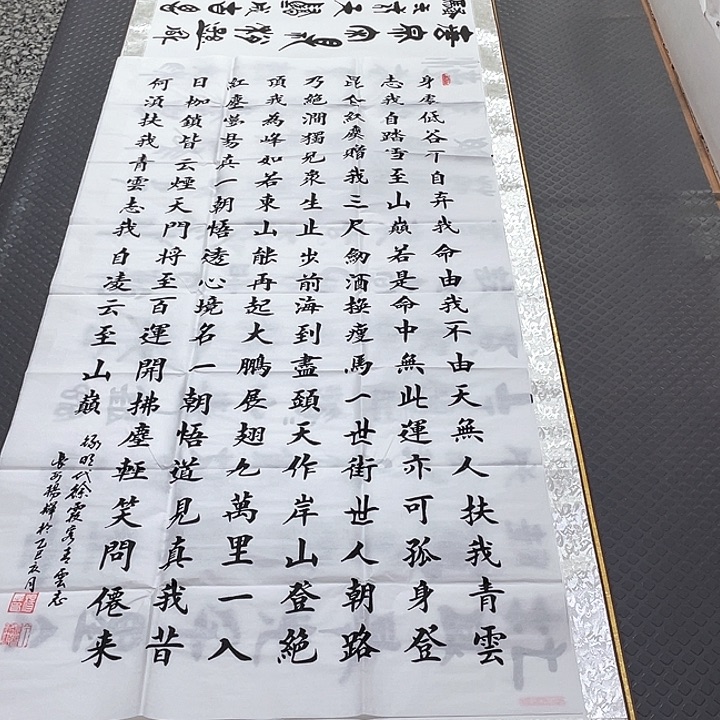 身處低谷不自弃我命由我不由天無人扶我青雲
志我自踏雪至山巔若是命中無此運亦可孤身登
昆仑紅塵贈我三尺劒酒換瘦馬一世街世人朝路
乃絕澗獨見衆生止步前海到盡頭天作岸山登絕
頂我為峰如若東山能再起大鵬展翅九萬里一入
紅塵夢易真一朝悟透心境名一朝悟道見真我昔
日枷鎖皆云煙天門將至百運開拂塵輕笑問僊来
何須扶我青雲志我自凌云至山巔
録明代徐霞客青雲志
楊輝於乙巳五月